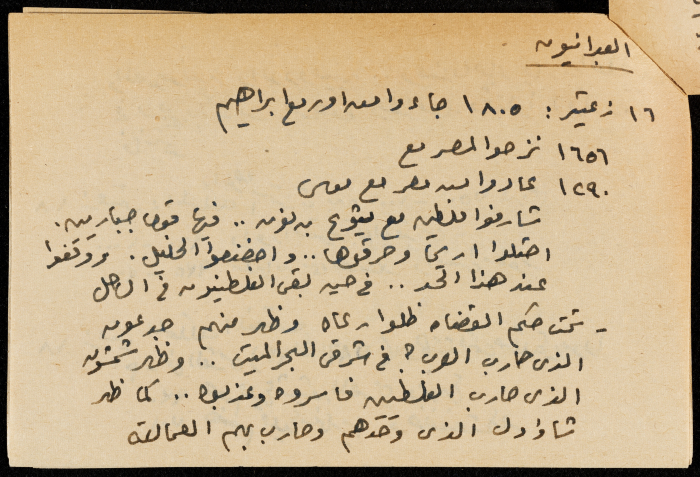 العبرانيون
١٦ زعيتر : ١٨٠٥ جاءوا من اور مع ابراهيم
١٦٥٦ نزحوا لمصر مع
١٢٩٠ عادوا من مصر مع موسى
شارفوا فلسطين مع يشوع بن نون .. فيها قوما جبارين .
احتلوا اريحا وحرقوها .. واخضعوا الخليل . ووقفوا
عند هذا الحد .. في حين بقى الفلسطينيون في الساحل
- تحت حكم القضاه ظلوا رعاه وظهر منهم جدعون
الذى حارب العرب ؟ في شرقى البحر الميت .. وظهر شمشون
الذى حارب الفلسطين فاسروه وعذبوه .. كما ظهر
شاؤول الذى وحّدهم وحارب بهم العمالقه